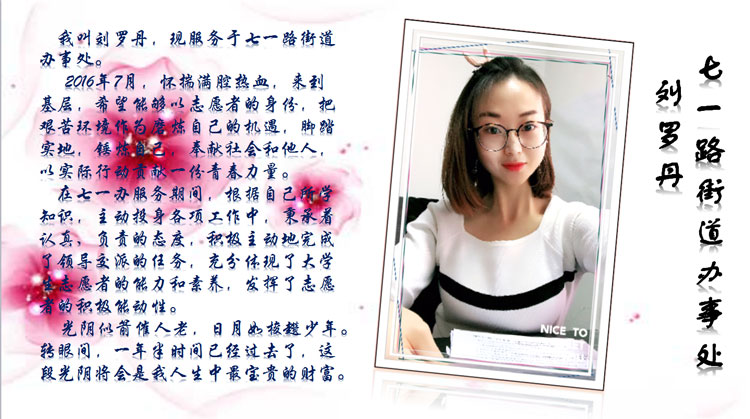 我叫刘罗丹，现服务于七一路街道
办事处。
2016年7月，怀揣满腔热血，来到
基层，希望能够以志愿者的身份，把
艰苦环境作为磨炼自己的机遇，脚踏
实地，锤炼自己，奉献社会和他人，
以实际行动贡献一份青春力量。
在七一办服务期间，根据自己所学
知识，主动投身各项工作中，秉承着
认真，负责的态度，积极主动地完成
了领导交派的任务，充分体现了大学
生志愿者的能力和素养，发挥了志愿
者的积极能动性。
光阴似箭催人老，日月如梭趱少年。
转眼间，一年半时间已经过去了，这
段光阴将会是我人生中最宝贵的财富。
NICE TO
七一路街道办事处
刘罗丹